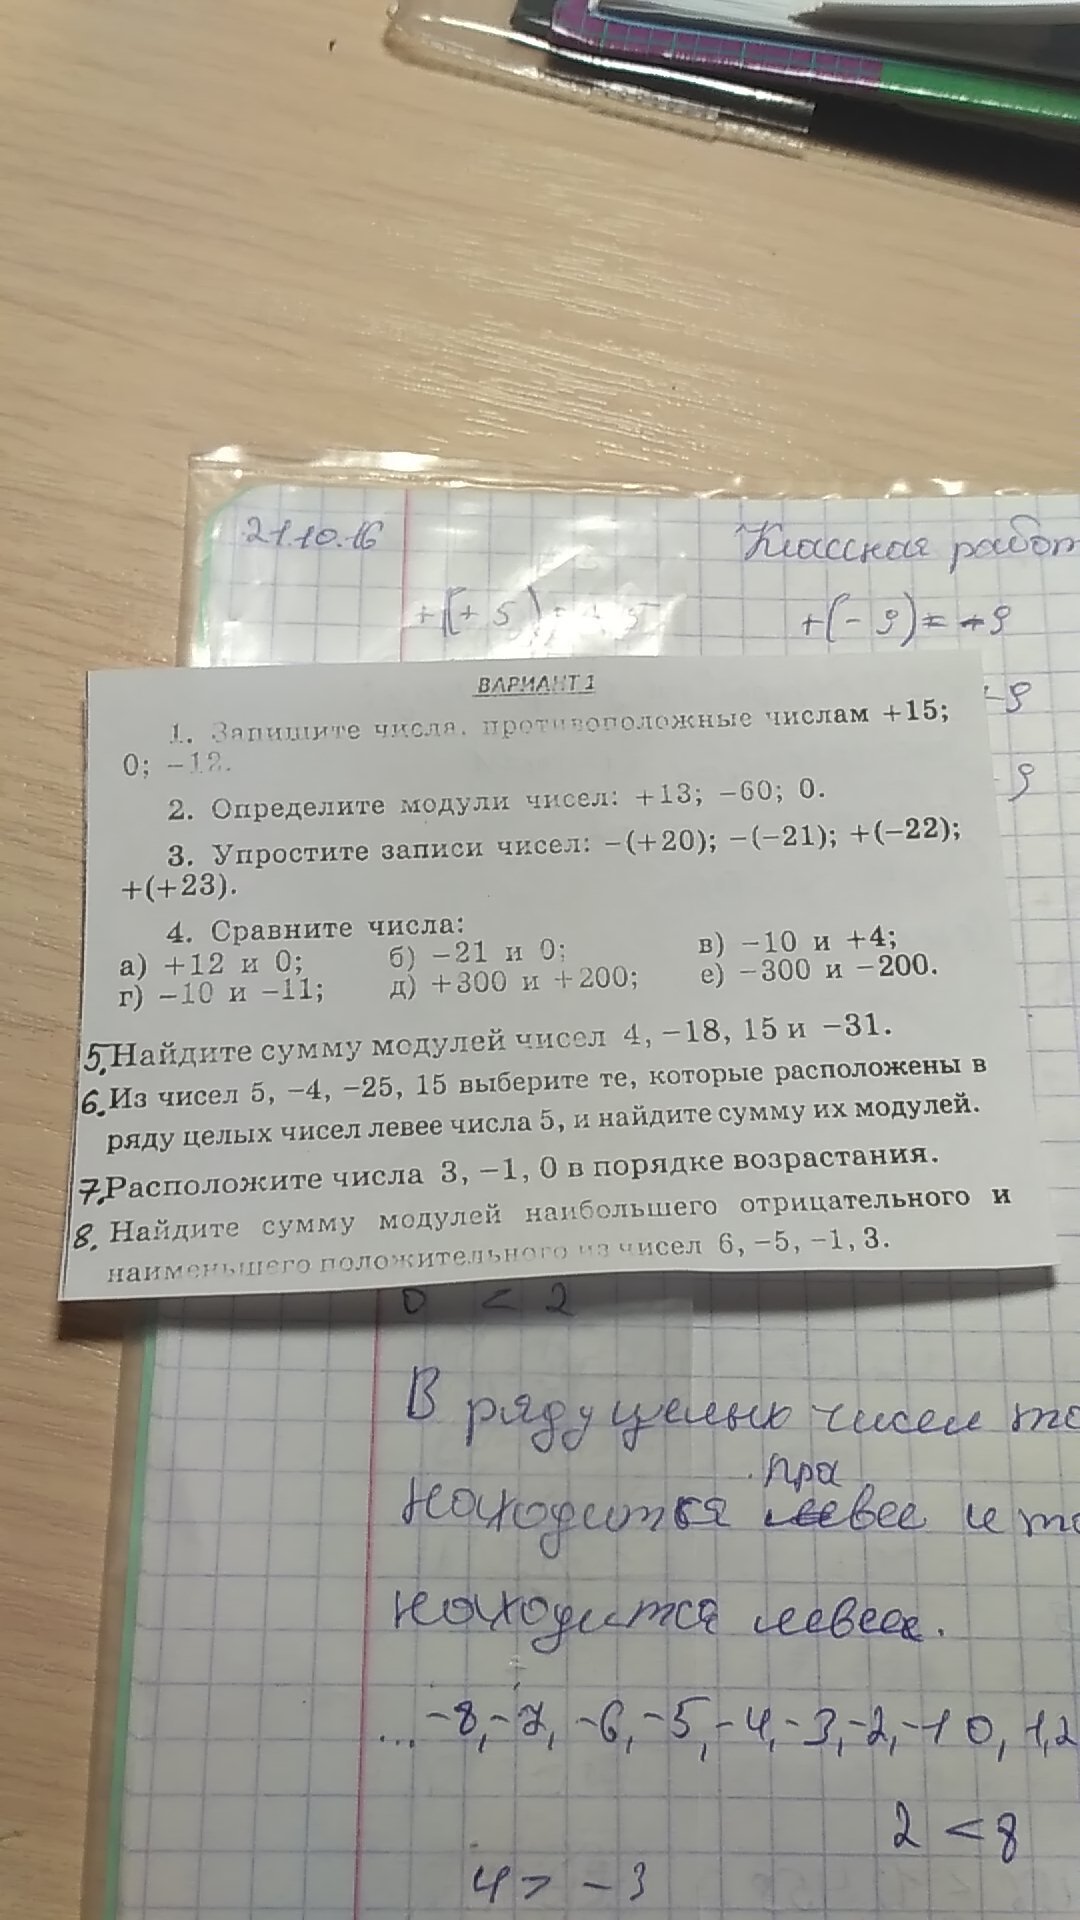 21.10.16
Классная работ
+(+5)
+(-9)=-9
-9
9
ВАРИАНТ 1
1. Запишите числа, противоположные числам +15;
0; -12.
2. Определите модули чисел: +13; -60; 0.
3. Упростите записи чисел: -(+20); -(-21); +(-22);
+(+23).
4. Сравните числа:
а) +12 и 0; б) -21 и 0; в) -10 и +4;
г) -10 и -11; д) +300 и +200; е) -300 и -200.
5. Найдите сумму модулей чисел 4, -18, 15 и -31.
6. Из чисел 5, -4, -25, 15 выберите те, которые расположены в
ряду целых чисел левее числа 5, и найдите сумму их модулей.
7. Расположите числа 3, -1, 0 в порядке возрастания.
8. Найдите сумму модулей наибольшего отрицательного и
наименьшего положительного из чисел 6, -5, -1, 3.
0 < 2
В ряду целых чисел то
пра
находится левее и то
находится левее.
... -8, -7, -6, -5, -4, -3, -2, -1 0, 1, 2
2 < 8
4 > -3